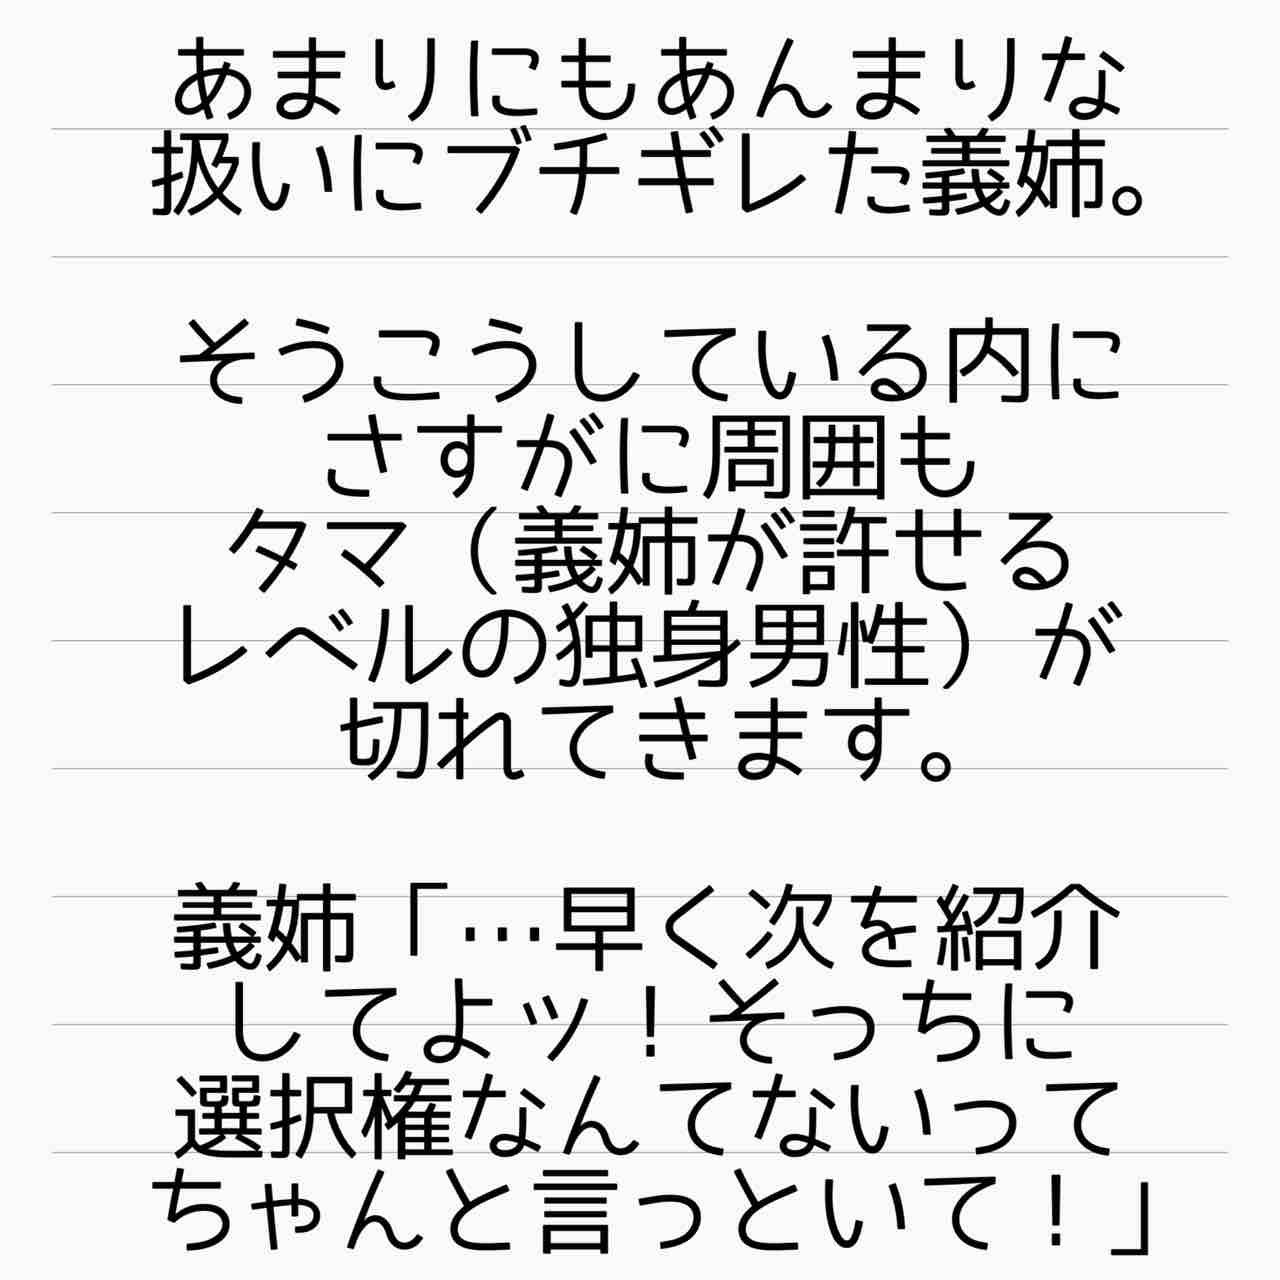 あまりにもあんまりな
扱いにブチギレた義姉。
そうこうしている内に
さすがに周囲も
タマ（義姉が許せる
レベルの独身男性）が
切れてきます。
義姉「…早く次を紹介
してよッ！そっちに
選択権なんてないって
ちゃんと言っといて！」